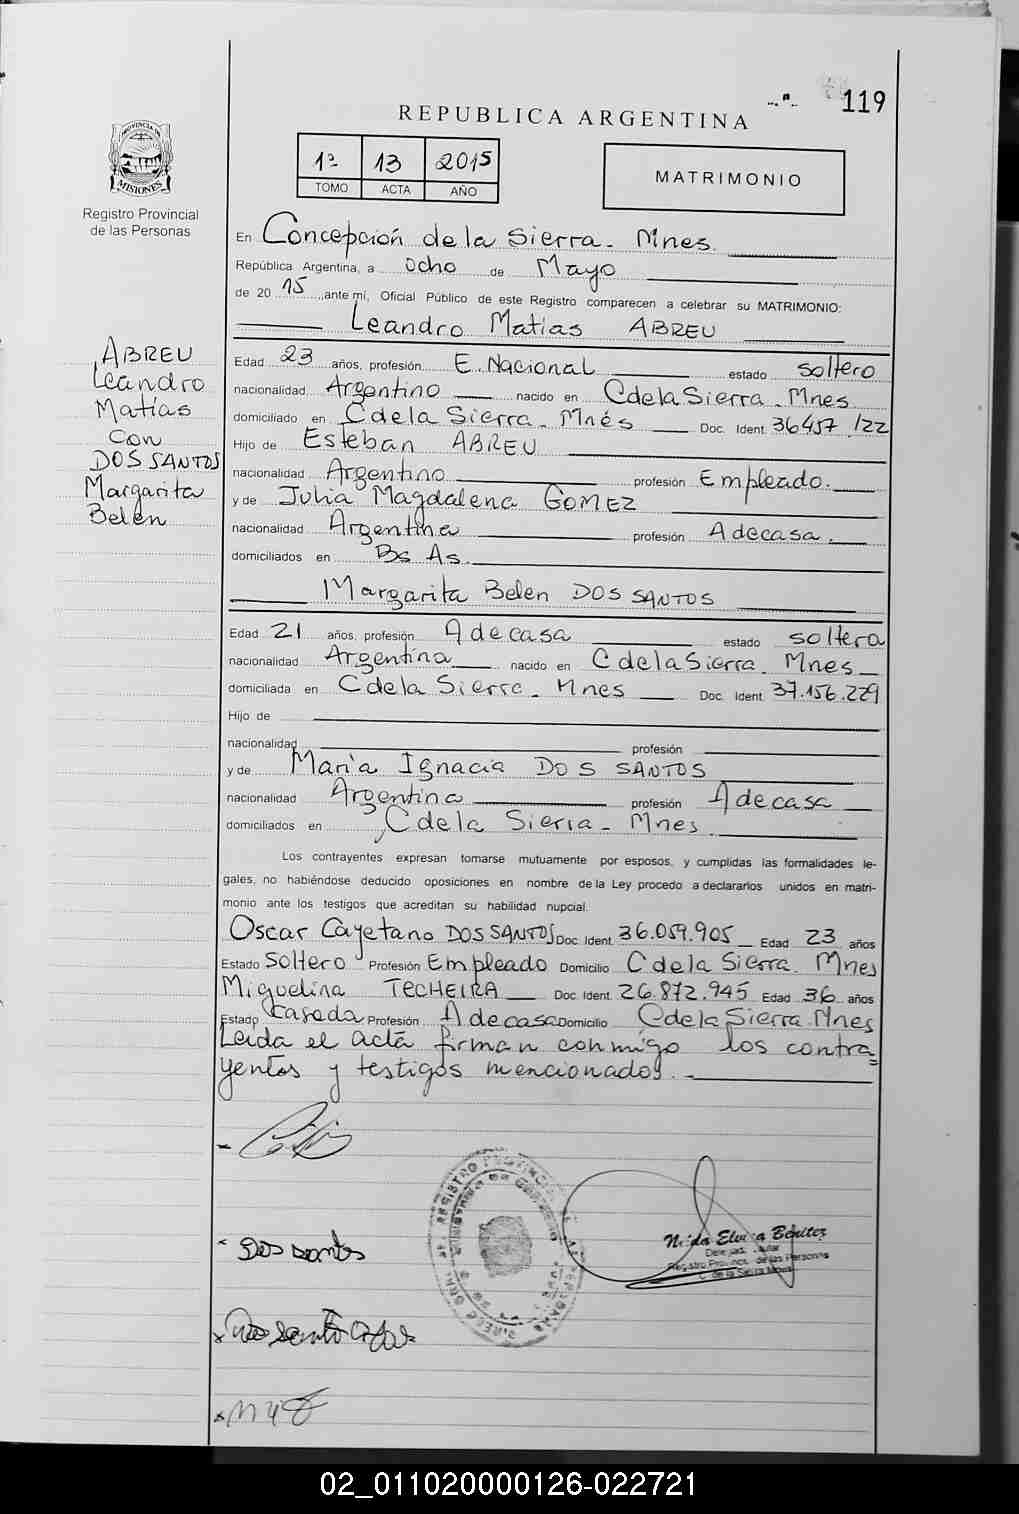 119
REPUBLICA ARGENTINA
PROVINCIA DE
MISIONES
Registro Provincial
de las Personas
1º 13 2015
TOMO ACTA AÑO
MATRIMONIO
En Concepción de la Sierra - Mnes.
República Argentina, a ocho de Mayo
de 20 15 ,ante mí, Oficial Público de este Registro comparecen a celebrar su MATRIMONIO:
Leandro Matias ABREU
ABREU
Leandro
Matías
con
DOS SANTOS
Margarita
Belén
Edad 23 años, profesión E. Nacional estado soltero
nacionalidad Argentino nacido en C de la Sierra - Mnes
domiciliado en C de la Sierra - Mnes Doc. Ident. 36457.122
Hijo de Esteban ABREU
nacionalidad Argentino profesión Empleado.
y de Julia Magdalena GOMEZ
nacionalidad Argentina profesión A de casa.
domiciliados en Bs As.
Margarita Belen DOS SANTOS
Edad 21 años, profesión A de casa estado soltera
nacionalidad Argentina nacido en C de la Sierra - Mnes
domiciliada en C de la Sierra - Mnes Doc. Ident. 37.156.229
Hijo de
nacionalidad profesión
y de Maria Ignacia DOS SANTOS
nacionalidad Argentina profesión A de casa
domiciliados en C de la Sierra - Mnes.
Los contrayentes expresan tomarse mutuamente por esposos, y cumplidas las formalidades le-
gales, no habiéndose deducido oposiciones en nombre de la Ley procedo a declararlos unidos en matri-
monio ante los testigos que acreditan su habilidad nupcial.
Oscar Cayetano DOS SANTOS Doc. Ident. 36.059.905 Edad 23 años
Estado Soltero Profesión Empleado Domicilio C de la Sierra. Mnes
Miguelina TECHEIRA Doc. Ident. 26.872.945 Edad 36 años
Estado Casada Profesión A de casa Domicilio C de la Sierra. Mnes
Leida el acta firman conmigo los contra=
yentes y testigos mencionados.
Dos santos
Elvira Benitez
Registro Provinc. de las Personas
C. de la Sierra
02_011020000126-022721